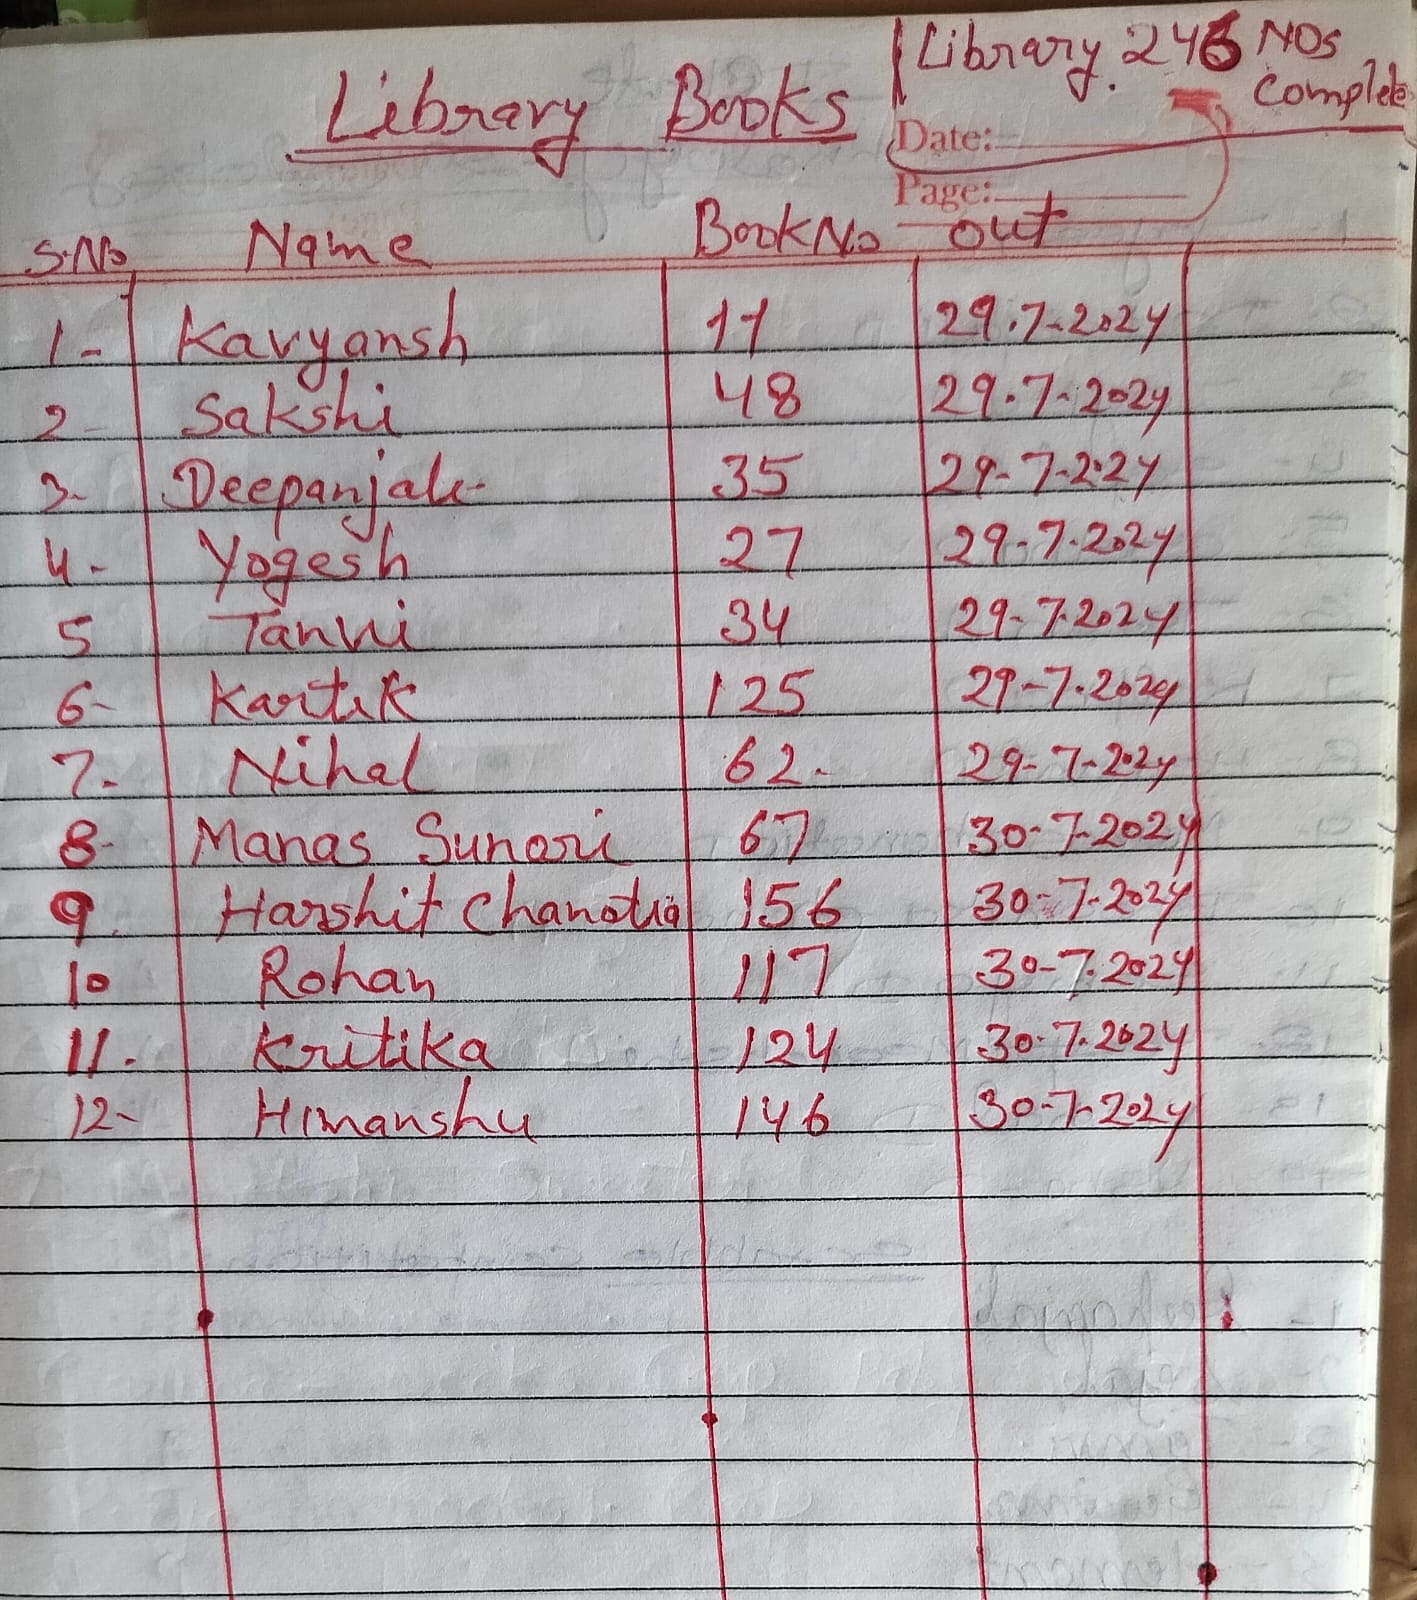 Library 246 NOS
Complete
Library Books
Date:
Page:
S.No Name Book No out
1- Kavyansh 11 29.7-2024
2- Sakshi 48 29.7-2024
3- Deepanjali 35 29-7-2024
4- Yogesh 27 29-7-2024
5 Tanvi 34 29-7.2024
6- Kartik 125 29-7.2024
7- Nihal 62. 29-7-2024
8- Manas Sunari 67 30-7-2024
9. Harshit 156 30-7-2024
10 Rohan 117 30-7.2024
11. Kritika 124 30-7.2024
12- Himanshu 146 30-7-2024